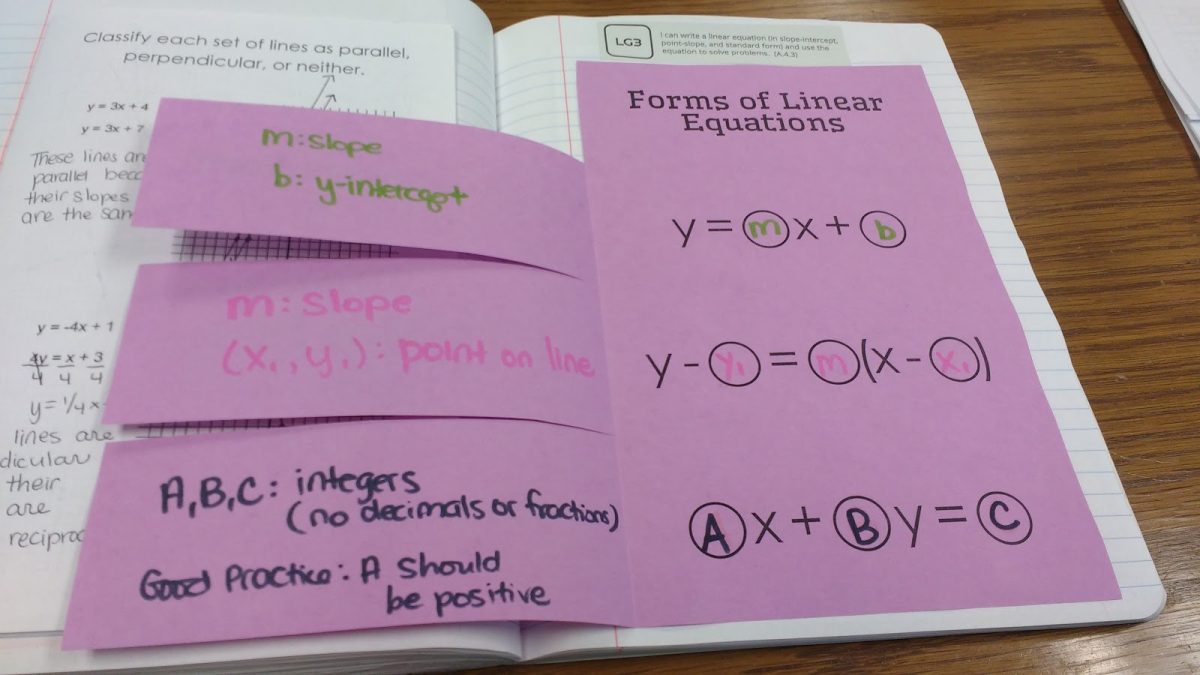 Classify each set of lines as parallel,
perpendicular, or neither.
y = 3x + 4
y = 3x + 7
These lines are
parallel
their slopes
are the
y = -4x + 1
4y = x + 3
4 4 4
y = 1/4 x
lines are
their
are
m: slope
b: y-intercept
m: slope
(x₁, y₁): point on line
A,B,C: integers
(no decimals or fractions)
Good Practice: A should
be positive
LG3
I can write a linear equation (in slope-intercept,
point-slope, and standard form) and use the
equation to solve problems. (A.4.3)
Forms of Linear
Equations
y = mx + b
y - y₁ = m(x - x₁)
Ax + By = C